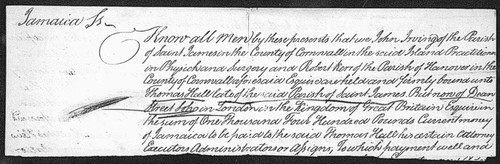 Jamaica Ss
Know all Men by these presents that we John Irving of the Parish
of Saint James in the County of Cornwall in the said Island Practitioner
in Physick and Surgery and Robert Kerr of the Parish of Hanover in the
County of Cornwall aforesaid Esquire are held and firmly bound unto
Thomas Hull late of the said Parish of Saint James But now of Dean
Street Soho in London in the Kingdom of Great Britain Esquire in
the sum of One Thousand Four Hundred Pounds Current money
of Jamaica to be paid to the said Thomas Hull his certain Attorney
Executors Administrators or Assigns, To which payment well and